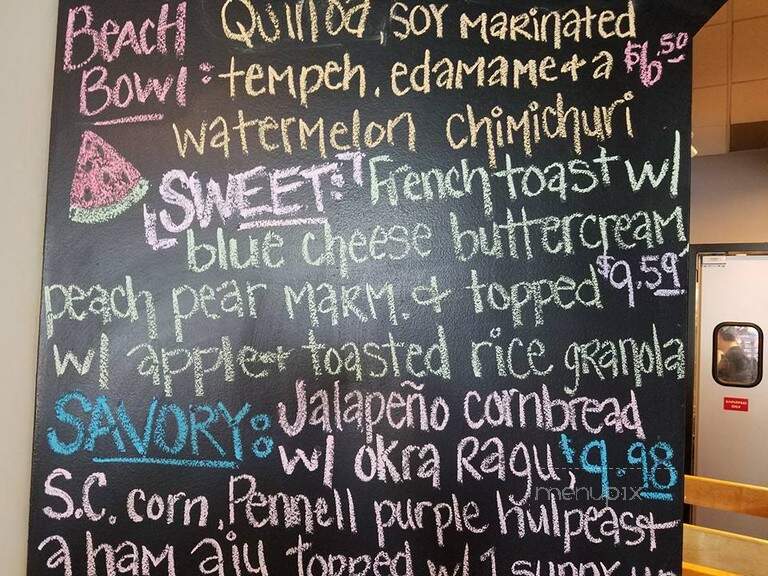 BEACH Quinoa soy marinated
BOWL: tempeh, edamame + a $6.50
watermelon chimichuri
"SWEET:" French toast w/
blue cheese buttercream
peach pear marm. + topped $9.59
w/ apple + toasted rice granola
SAVORY: Jalapeño cornbread
w/ okra Ragu, $9.98
S.C. corn, Pennell purple hulpeas +
a ham aju topped w/ 1 sunny up
menupix